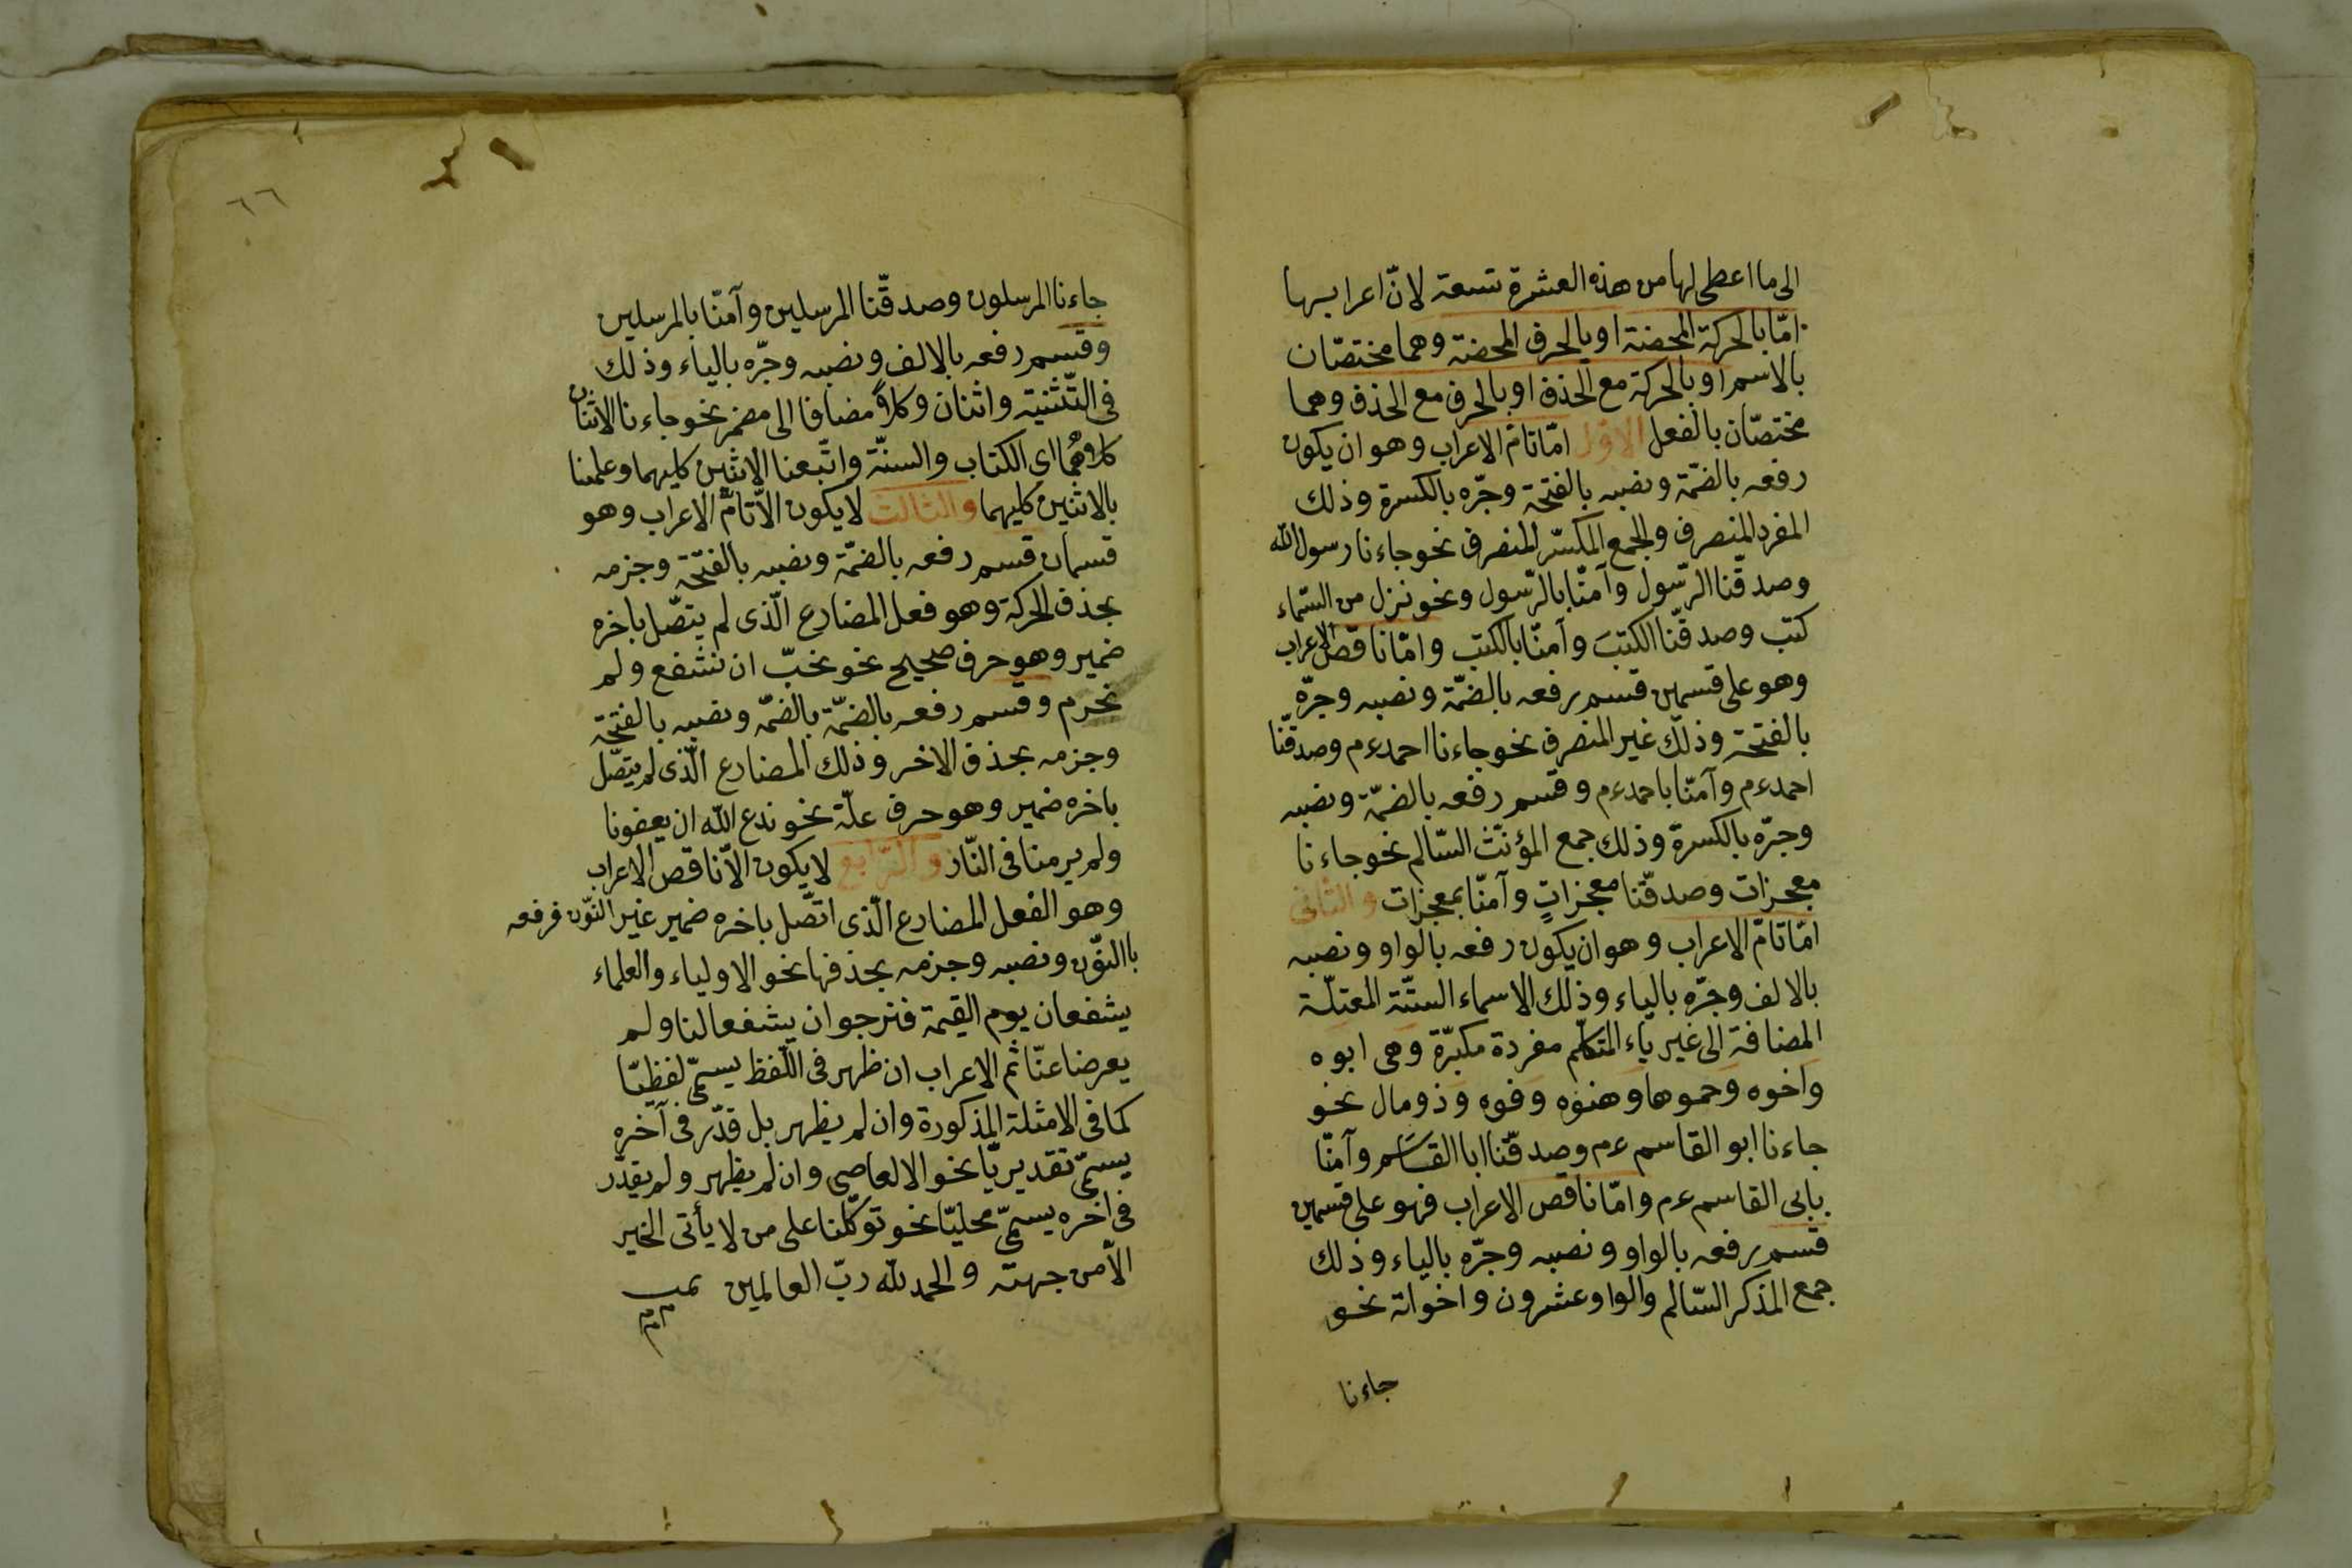 الى ما اعطى لها من هذه العشرة تسعة لانّ اعرابها
امّا بالحركة المحضة او بالحرف المحضة وهما مختصّان
بالاسم او بالحركة مع الحذف او بالحرف مع الحذف وهما
مختصّان بالفعل الاوّل امّا تامّ الاعراب وهو ان يكون
رفعه بالضمّة ونصبه بالفتحة وجرّه بالكسرة وذلك
المفرد المنصرف والجمع المكسّر المنصرف نحو جاءنا رسول الله
وصدقنا الرّسول وآمنّا بالرّسول ونحو نزل من السّماء
كتب وصدقّنا الكتبَ وآمنّا بالكتب وامّا ناقص الاعراب
وهو على قسمين قسم رفعه بالضمّة ونصبه وجرّه
بالفتحة وذلك غير المنصرف نحو جاءنا احمد ءم وصدقّنا
احمد ءم وآمنّا باحمد ءم وقسم رفعه بالضمّة ونصبه
وجرّه بالكسرة وذلك جمع المؤنّث السّالم نحو جاءنا
معجزات وصدقّنا معجزاتٍ وآمنّا بمعجزات والثانى
امّا تامّ الاعراب وهو ان يكون رفعه بالواو ونصبه
بالالف وجرّه بالياء وذلك الاسماء الستّة المعتلّة
المضافة الى غير ياء المتكلّم مفردة مكبّرة وهى ابوه
واخوه وحموها وهنوه وفوه وذومال نحو
جاءنا ابو القاسم ءم وصدقّنا ابا القاسم وآمنّا
بابى القاسم ءم وامّا ناقص الاعراب فهو على قسمين
قسم رفعه بالواو ونصبه وجرّه بالياء وذلك
جمع المذكر السّالم والواو عشرون واخواته نحو
جاءنا
٦٦
جاءنا المرسلون وصدقّنا المرسلين وآمنّا بالمرسلين
وقسم رفعه بالالف ونصبه وجرّه بالياء وذلك
فى التّثنية واثنان وكلا مضافا الى مضمر نحو جاءنا الاثنان
كلاهما اى الكتاب والسنّة واتّبعنا الاثنين كليهما وعلمنا
بالاثنين كليهما والثالث لا يكون الّا تامّ الاعراب وهو
قسمان قسم رفعه بالضمّة ونصبه بالفتحة وجزمه
بحذف الحركة وهو فعل المضارع الّذى لم يتّصل باخره
ضمير وهو حرف صحيح نحو نحبّ ان نشفع ولم
نحرم وقسم رفعه بالضمّة بالضمّة ونصبه بالفتحة
وجزمه بحذف الاخر وذلك المضارع الّذى لم يتّصل
باخره ضمير وهو حرف علّة نحو ندع الله ان يعفونا
ولم يرمنا فى النّار والرّابع لا يكون الّا ناقص الاعراب
وهو الفعل المضارع الّذى اتّصل باخره ضمير غير النّون فرفعه
باالنّون ونصبه وجزمه بحذفها نحو الاولياء والعلماء
يشفعان يوم القيمة فنرجو ان يشفعا لنا ولم
يعرضا عنّا ثم الاعراب ان ظهر فى اللّفظ يسمّى لفظيّا
كما فى الامثلة المذكورة وان لم يظهر بل قدّر فى آخره
يسمّى تقديريّا نحو الالعاصى وان لم يظهر ولم يقدّر
فى اخره يسمّى محليّا نحو توكّلنا على من لا يأتى الخير
الّا من جهته والحمد لله ربّ العالمين تمت